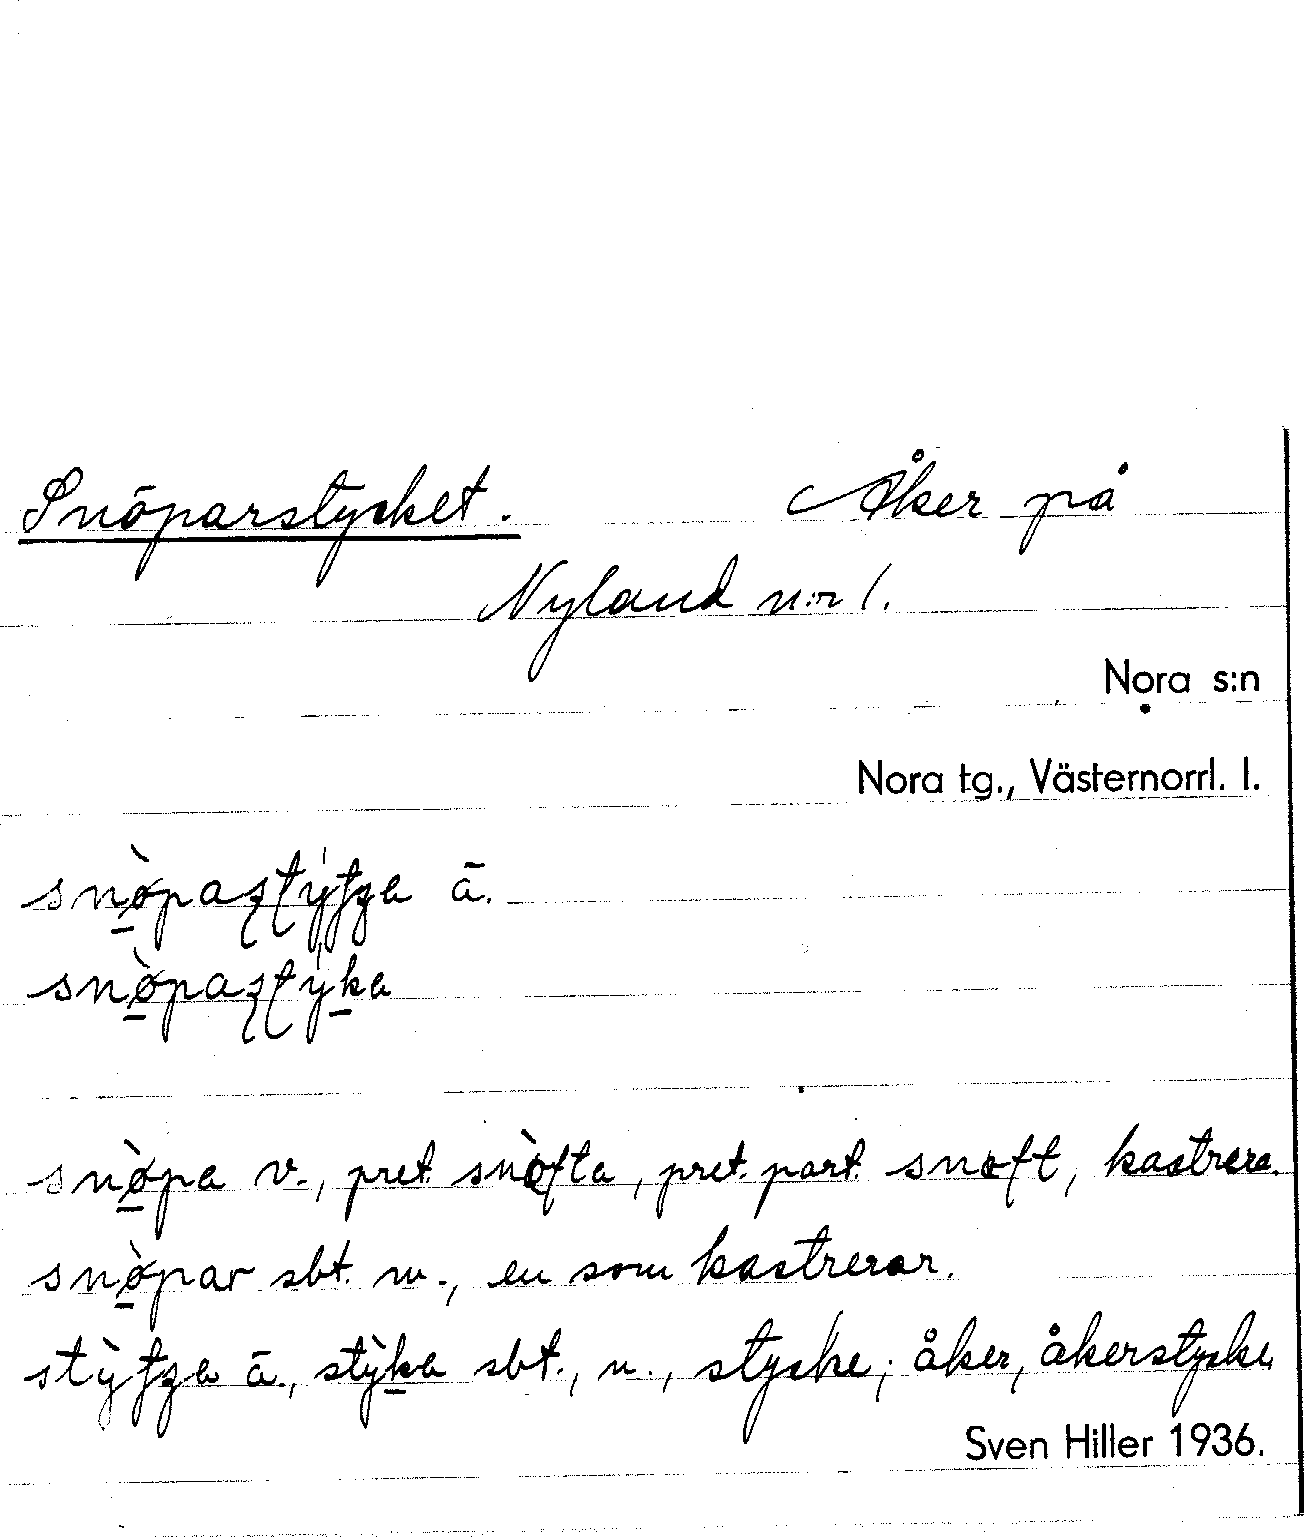 Snöparstycket. Åker på
Nyland n:r 1.
Nora s:n
Nora tg., Västernorrl. l.
snø̱̀paʂʈy̍tʒa ā.
snø̱̀paʂʈy̍ḵa
snø̱̀pa v., pret. snø̀fta, pret. part. snøft, kastrera.
snø̱̀par sbt. m., en som kastrerar.
stỳtʒa ā., stỳḵa sbt., n., stycke; åker, åkerstycke.
Sven Hiller 1936.